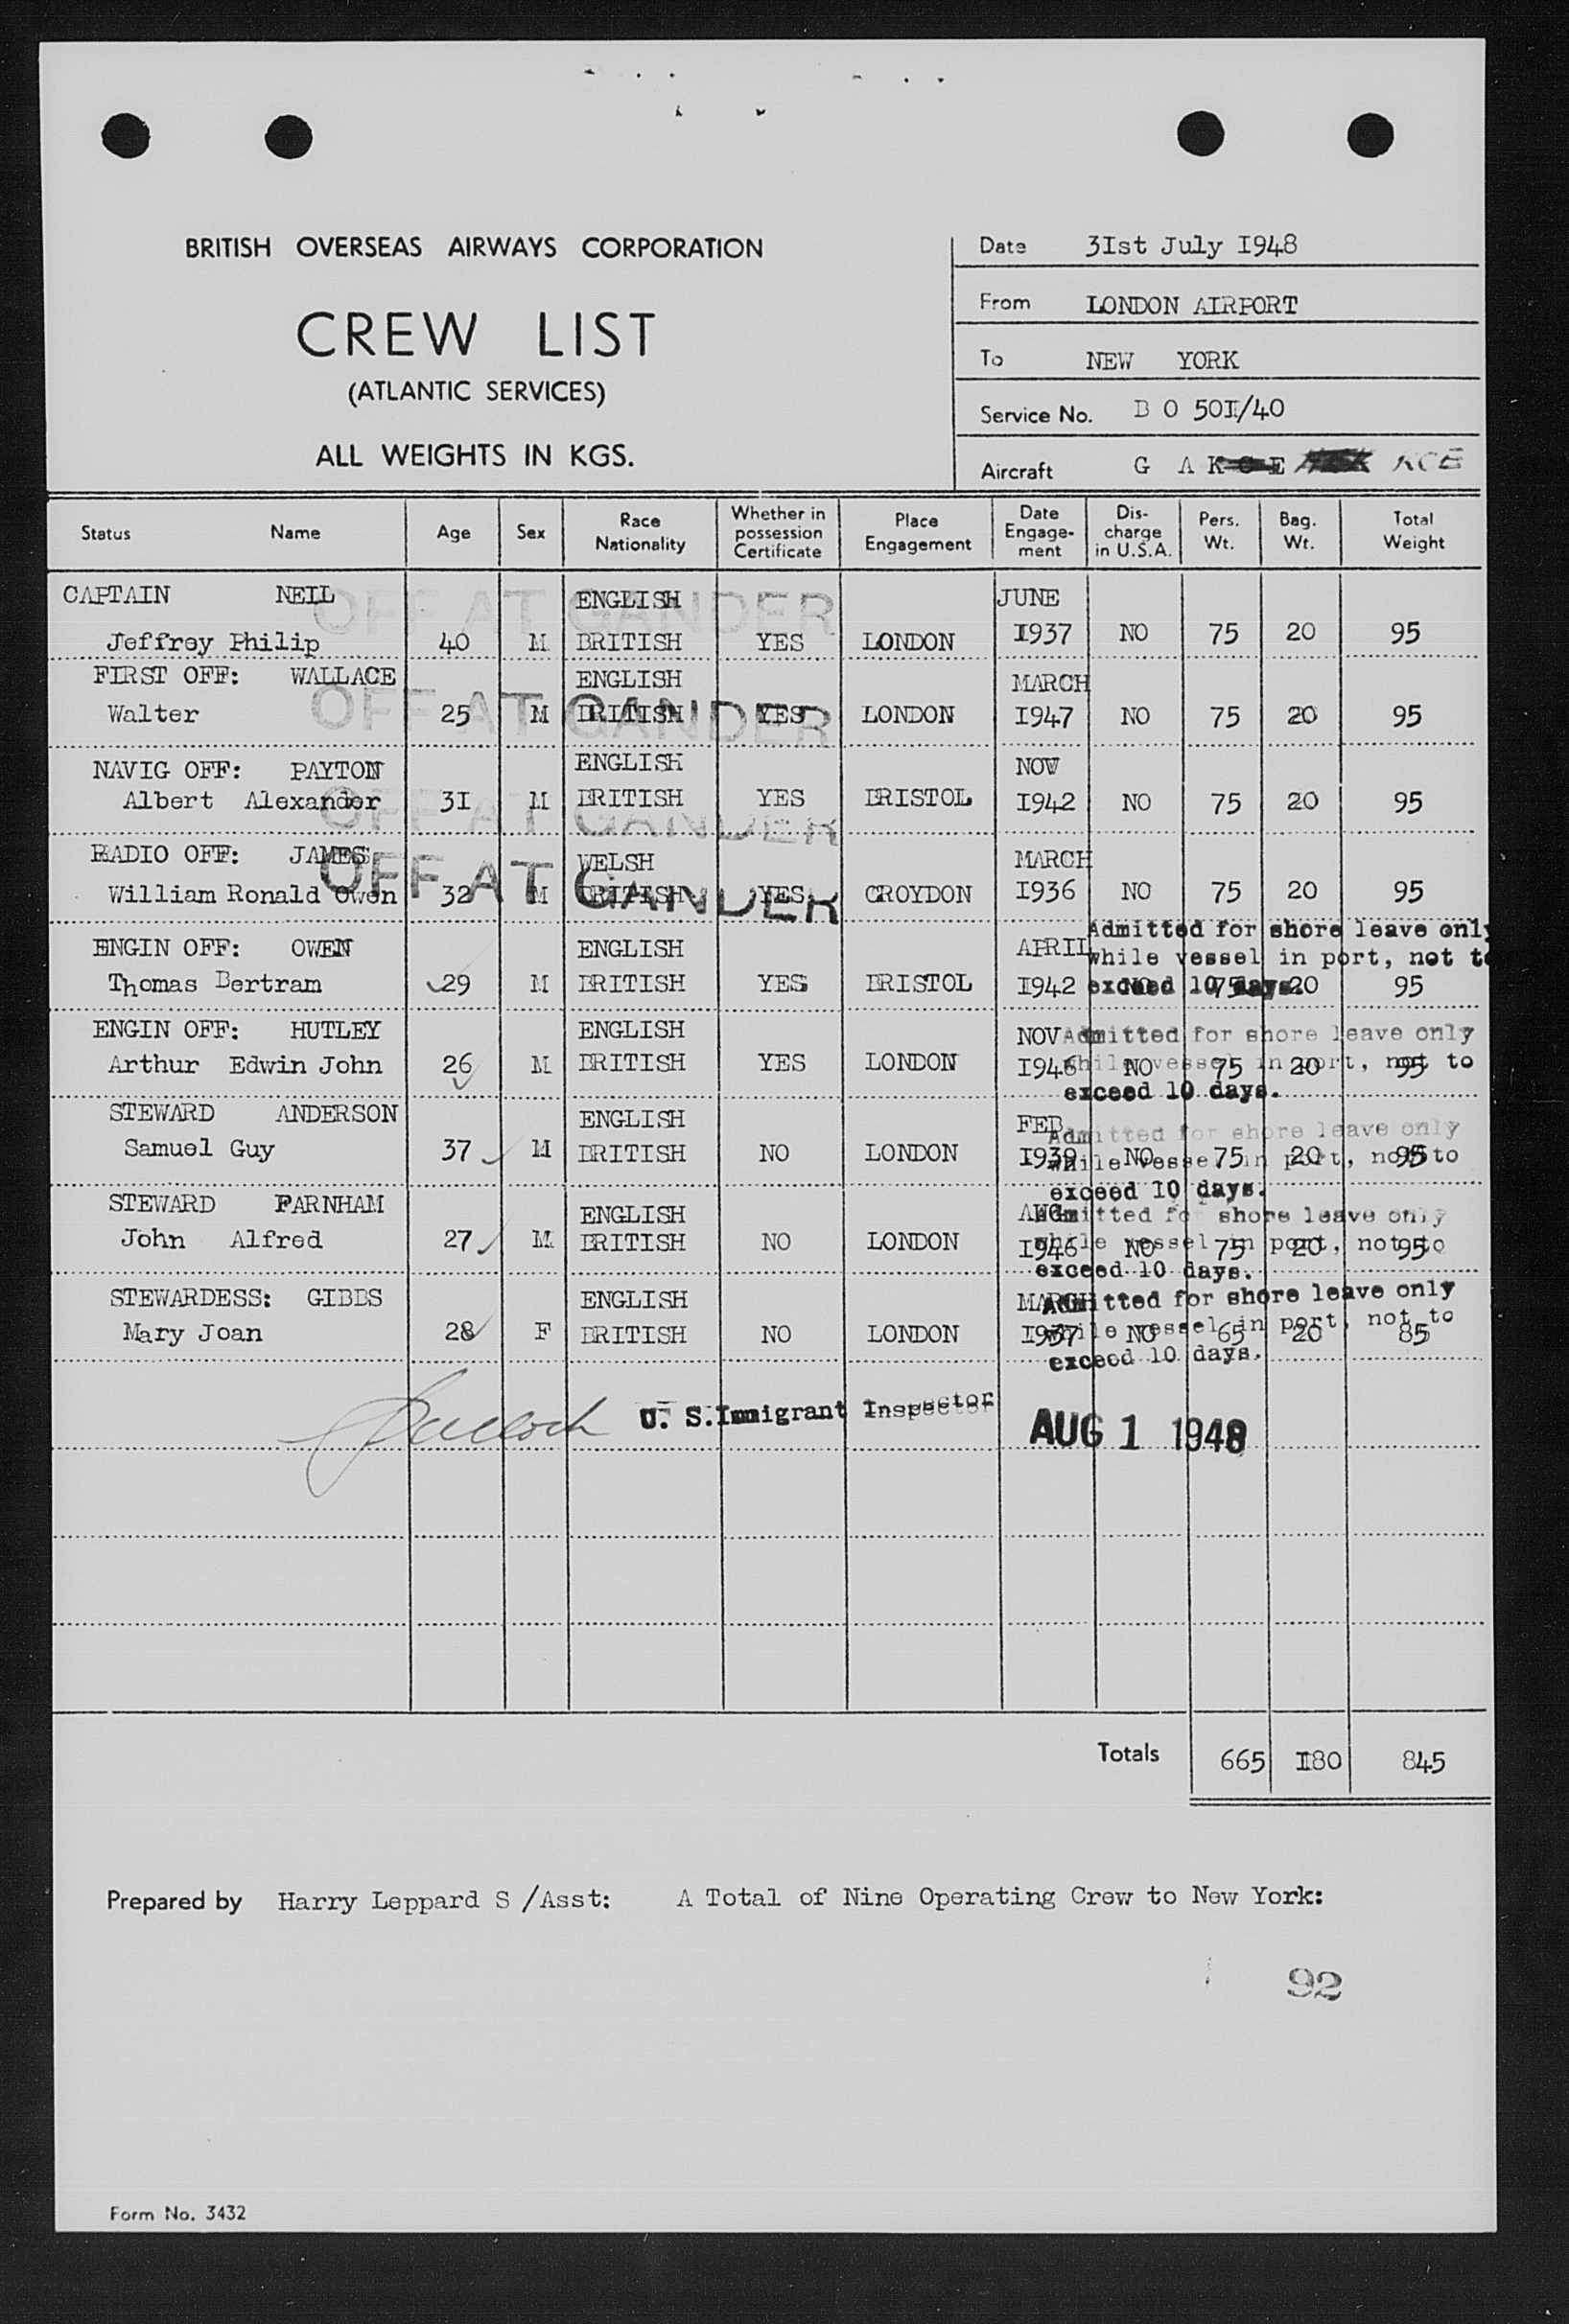 BRITISH OVERSEAS AIRWAYS CORPORATION
CREW LIST
(ATLANTIC SERVICES)
ALL WEIGHTS IN KGS.
Date 3Ist July I948
From LONDON AIRPORT
To NEW YORK
Service No. B O 50I/40
Aircraft G A K KCE
Status Name Age Sex Race Nationality Whether in possession Certificate Place Engagement Date Engage-ment Dis-charge in U.S.A. Pers. Wt. Bag. Wt. Total Weight
CAPTAIN NEIL ENGLISH JUNE
OFF AT GANDER
Jeffrey Philip 40 M BRITISH YES LONDON I937 NO 75 20 95
FIRST OFF: WALLACE ENGLISH MARCH
OFF AT GANDER
Walter 25 M BRITISH YES LONDON I947 NO 75 20 95
NAVIG OFF: PAYTON ENGLISH NOV
Albert Alexander 3I M BRITISH YES BRISTOL I942 NO 75 20 95
OFF AT GANDER
RADIO OFF: JAMES WELSH MARCH
OFF AT GANDER
William Ronald Owen 32 M BRITISH YES CROYDON I936 NO 75 20 95
ENGIN OFF: OWEN ENGLISH APRIL
Thomas Bertram 29 M BRITISH YES BRISTOL I942 NO 75 20 95
Admitted for shore leave only
while vessel in port, not to
exceed 10 days.
ENGIN OFF: HUTLEY ENGLISH NOV
Arthur Edwin John 26 M BRITISH YES LONDON I946 NO 75 20 95
Admitted for shore leave only
while vessel in port, not to
exceed 10 days.
STEWARD ANDERSON ENGLISH FEB
Samuel Guy 37 M BRITISH NO LONDON I939 NO 75 20 95
Admitted for shore leave only
while vessel in port, not to
exceed 10 days.
STEWARD FARNHAM ENGLISH AUG
John Alfred 27 M BRITISH NO LONDON I946 NO 75 20 95
Admitted for shore leave only
while vessel in port, not to
exceed 10 days.
STEWARDESS: GIBBS ENGLISH MARCH
Mary Joan 28 F BRITISH NO LONDON I937 NO 65 20 85
Admitted for shore leave only
while vessel in port, not to
exceed 10 days.
U. S. Immigrant Inspector
AUG 1 1948
Totals 665 I80 845
Prepared by Harry Leppard S /Asst: A Total of Nine Operating Crew to New York:
92
Form No. 3432